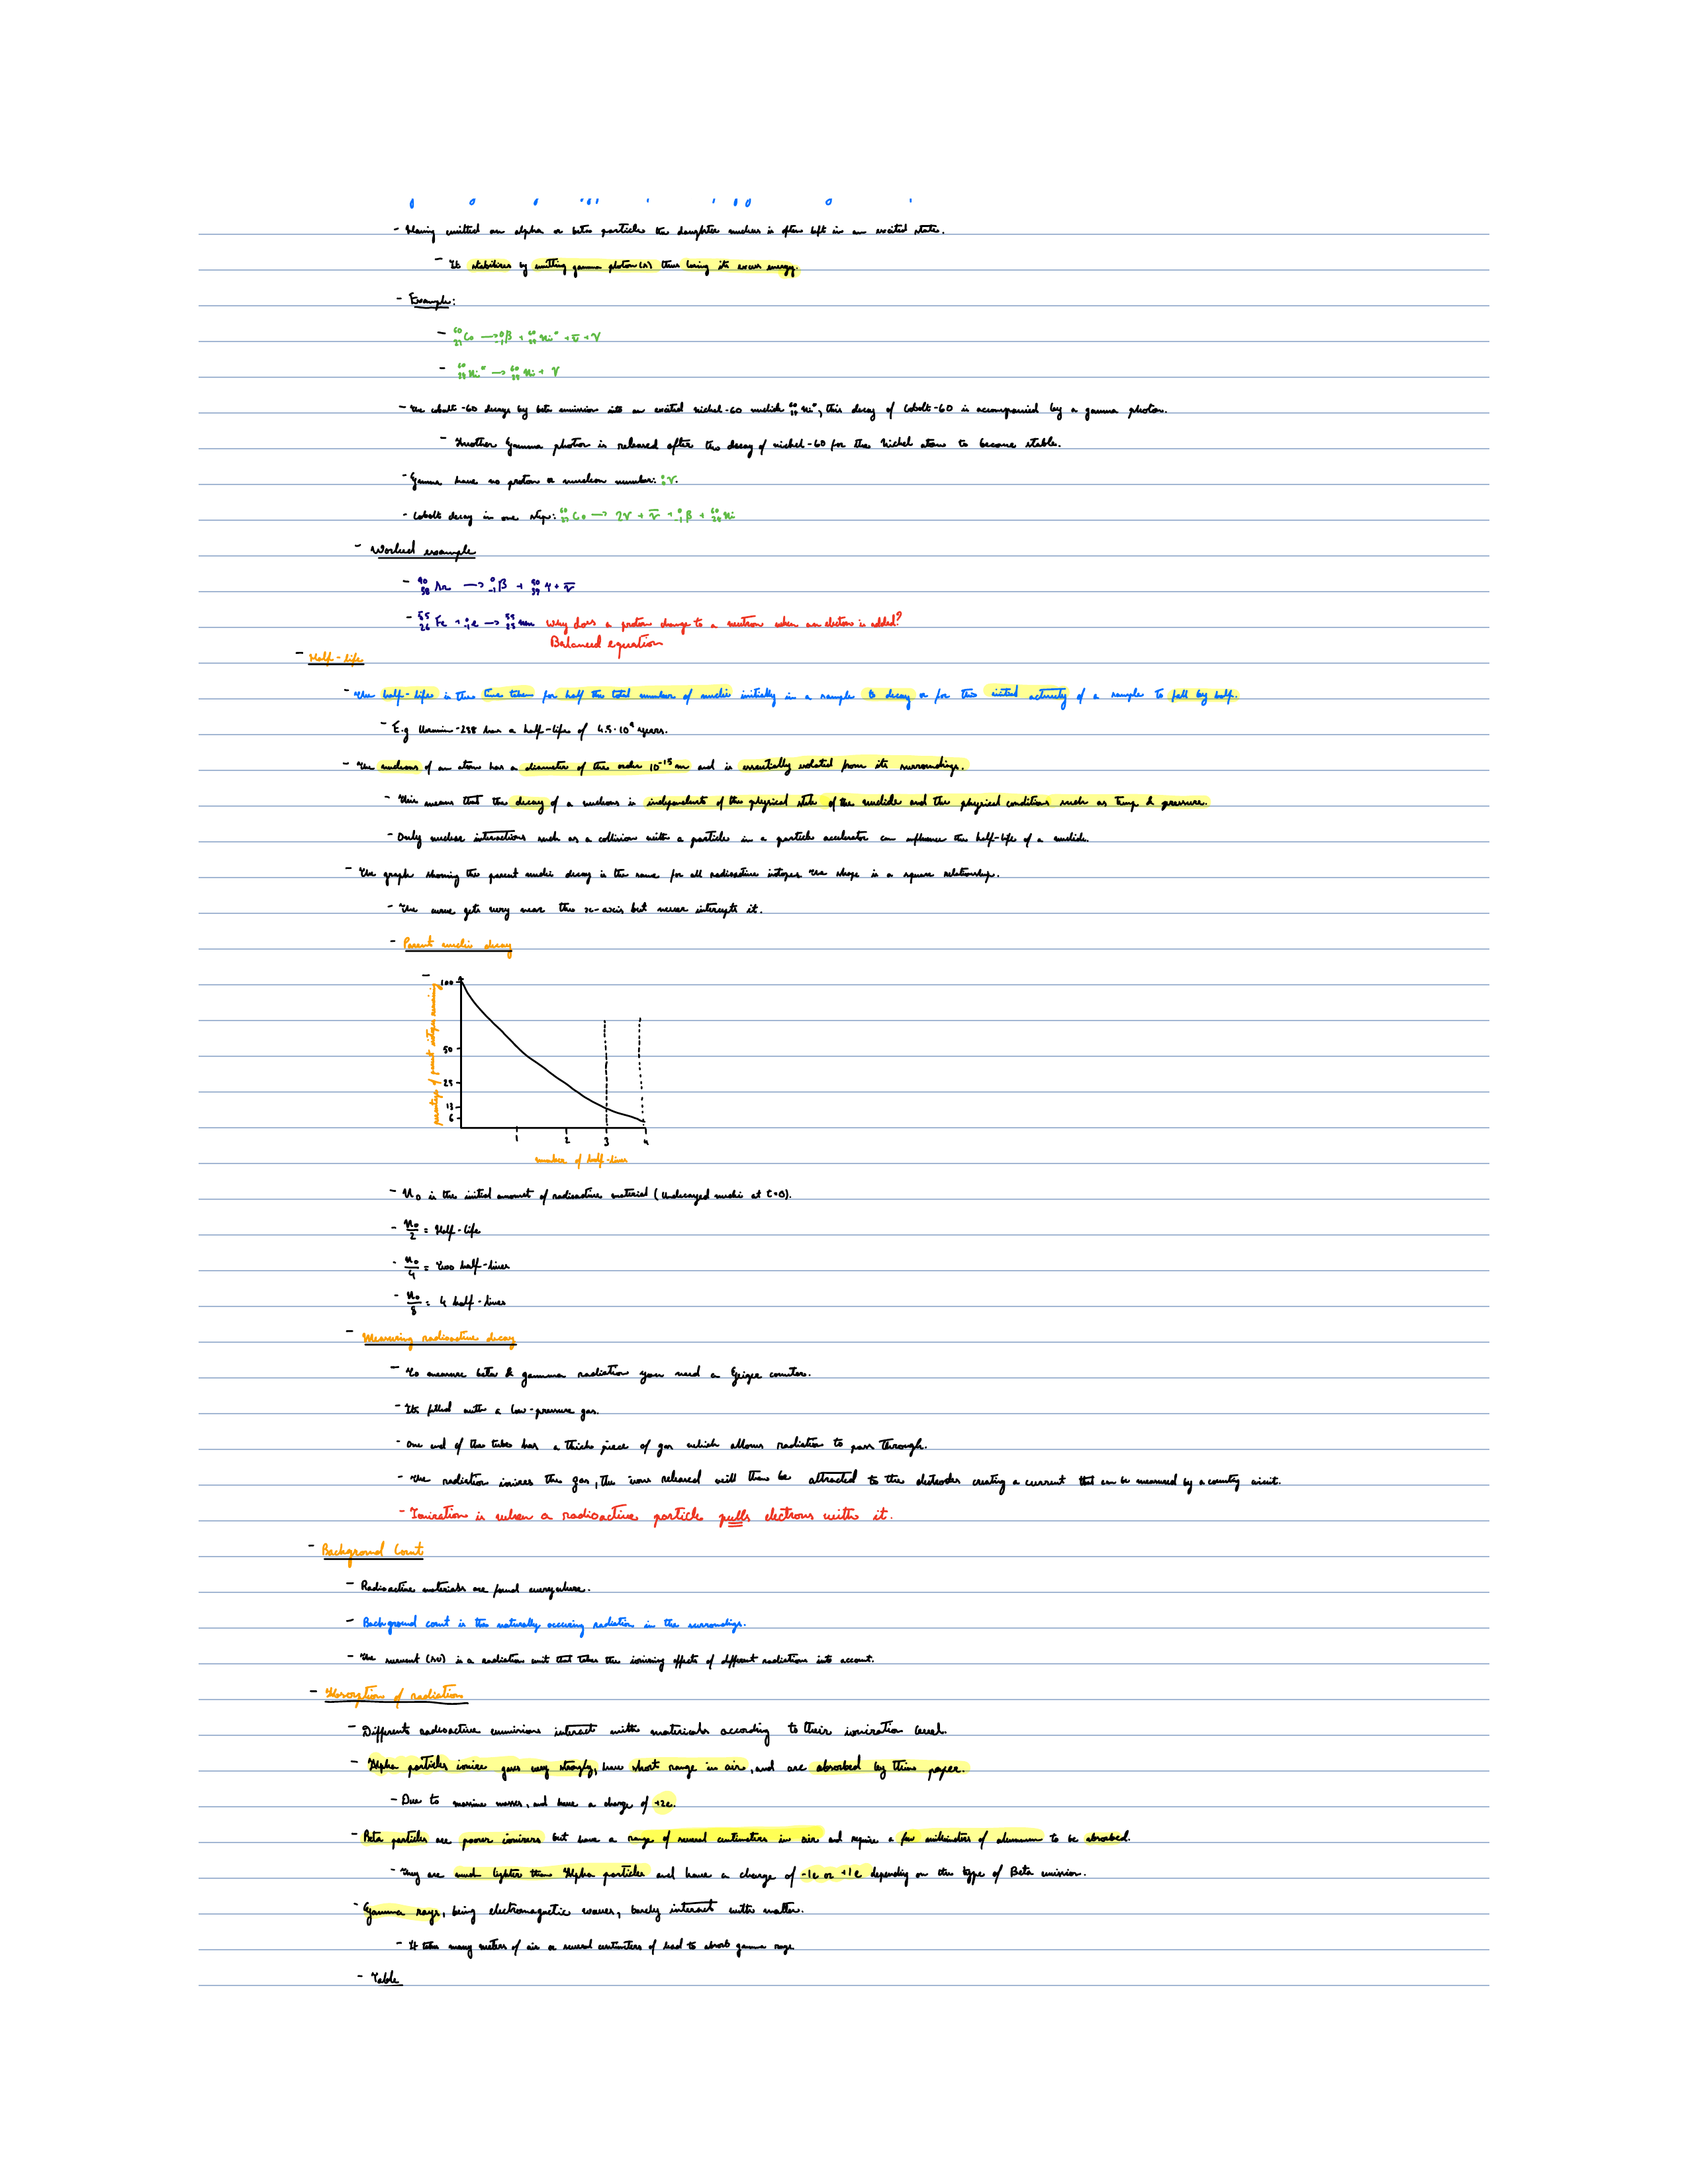 - Having emitted an alpha or beta particle the daughter nucleus is often left in an excited state.
- It stabilises by emitting gamma photon(s) thus losing its excess energy.
- Example:
- ⁶⁰₂₇Co → ⁰₋₁β + ⁶⁰₂₈Ni* + ν̅ + γ
- ⁶⁰₂₈Ni* → ⁶⁰₂₈Ni + γ
- The cobalt-60 decays by beta emission into an excited nickel-60 nuclide ⁶⁰₂₈Ni*, this decay of cobalt-60 is acompanied by a gamma photon.
- Another gamma photon is released after the decay of nickel-60 for the Nickel atom to become stable.
- Gamma have no proton or nucleon number: ⁰₀γ.
- Cobalt decay in one step: ⁶⁰₂₇Co → 2γ + ν̅ + ⁰₋₁β + ⁶⁰₂₈Ni
- Worked example
- ⁹⁰₃₈Sr → ⁰₋₁β + ⁹⁰₃₉Y + ν̅
- ⁵⁵₂₆Fe + ⁰₋₁e → ⁵⁵₂₅Mn Why does a proton change to a neutron when an electron is added?
Balanced equation
- Half-life
- The half-life is the time taken for half the total number of nuclei initially in a sample to decay or for the initial activity of a sample to fall by half.
- E.g Uranium-238 has a half-life of 4.5·10⁹ years.
- The nucleus of an atom has a diameter of the order 10⁻¹⁵m and is essentially isolated from its surroundings.
- This means that the decay of a nucleus is independent of the physical state of the nuclide and the physical conditions such as temp & pressure.
- Only nuclear interactions such as a collision with a particle in a particle accelerator can influence the half-life of a nuclide.
- The graph showing the parent nuclei decay is the same for all radioactive isotopes the shape is a square relationship.
- The curve gets very near the x-axis but never intercepts it.
- Parent nuclei decay
-
percentage of parent isotopes remaining
100
50
25
13
6
1 2 3 4
number of half-lives
- N₀ is the initial amount of radioactive material (Undecayed nuclei at t=0).
- N₀/2 = Half-life
- N₀/4 = Two half-lives
- N₀/8 = 4 half-lives
- Measuring radioactive decay
- To measure beta & gamma radiation you need a Geiger counter.
- Its filled with a low-pressure gas.
- One end of the tube has a thick piece of gas which allows radiation to pass through.
- The radiation ionises the gas, the ions released will then be attracted to the electrodes creating a current that can be measured by a counting circuit.
- Ionization is when a radioactive particle pulls electrons with it.
- Background Count
- Radioactive materials are found everywhere.
- Background count is the naturally occuring radiation in the surroundings.
- The (sv) is a radiation unit that takes the ionising effects of different radiations into account.
- Absorption of radiation
- Different radioactive emmisions interact with materials according to their ionization level.
- Alpha particles ionize gases very strongly, have short range in air, and are absorbed by thin paper.
- Due to massive masses, and have a charge of +2e.
- Beta particles are poorer ionizers but have a range of several centimeters in air and require a few millimeters of aluminum to be absorbed.
- They are much lighter than Alpha particles and have a charge of -1e or +1e depending on the type of Beta emission.
- Gamma rays, being electromagnetic waves, barely interact with matter.
- It takes many meters of air or several centimeters of lead to absorb gamma rays
- Table